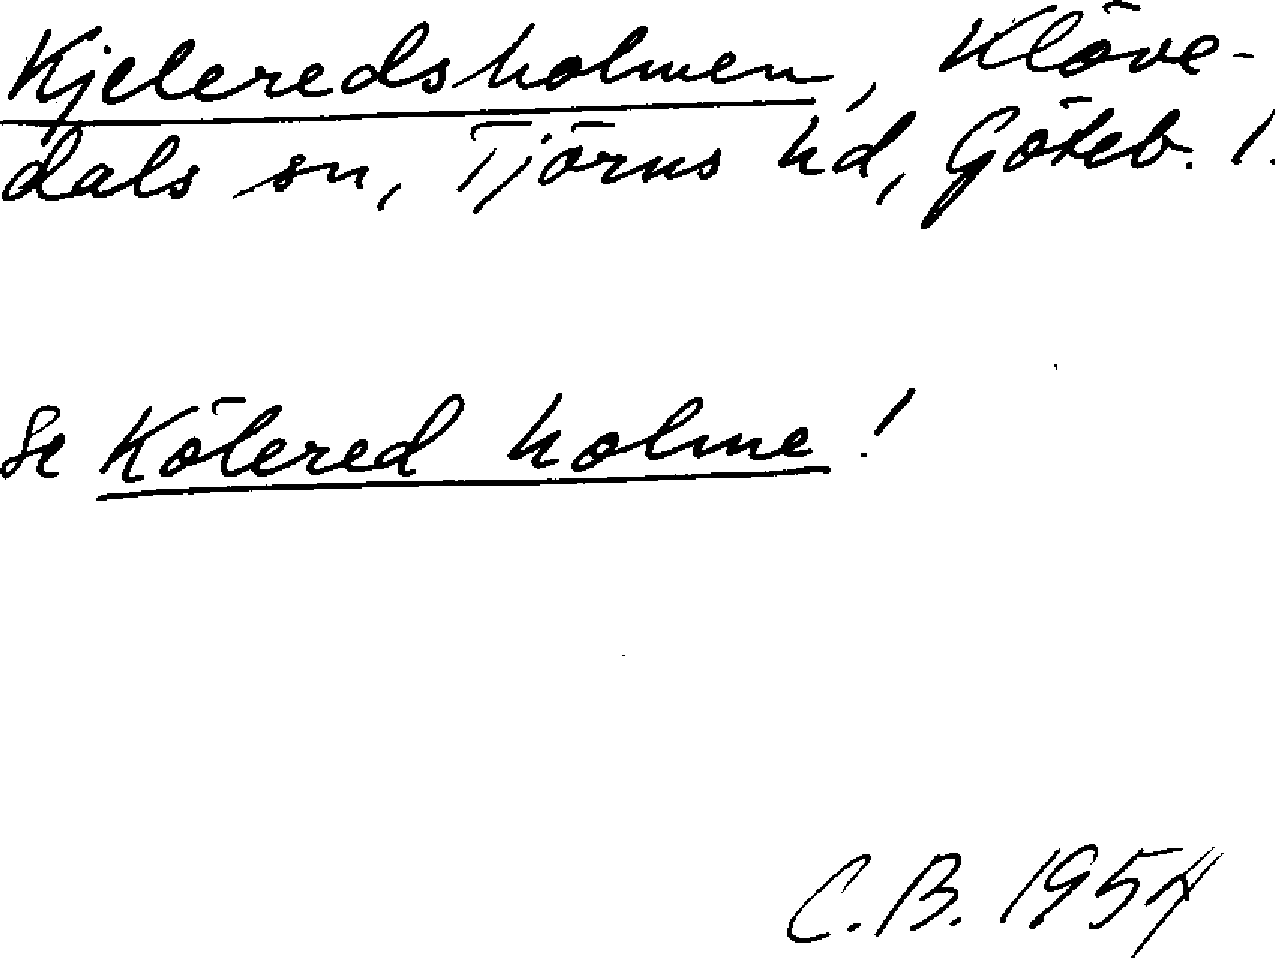 Kjeleredsholmen, Klöve-
dals sn, Tjörns hd, Göteb. l.
Se Kölered holme!
C.B. 1954